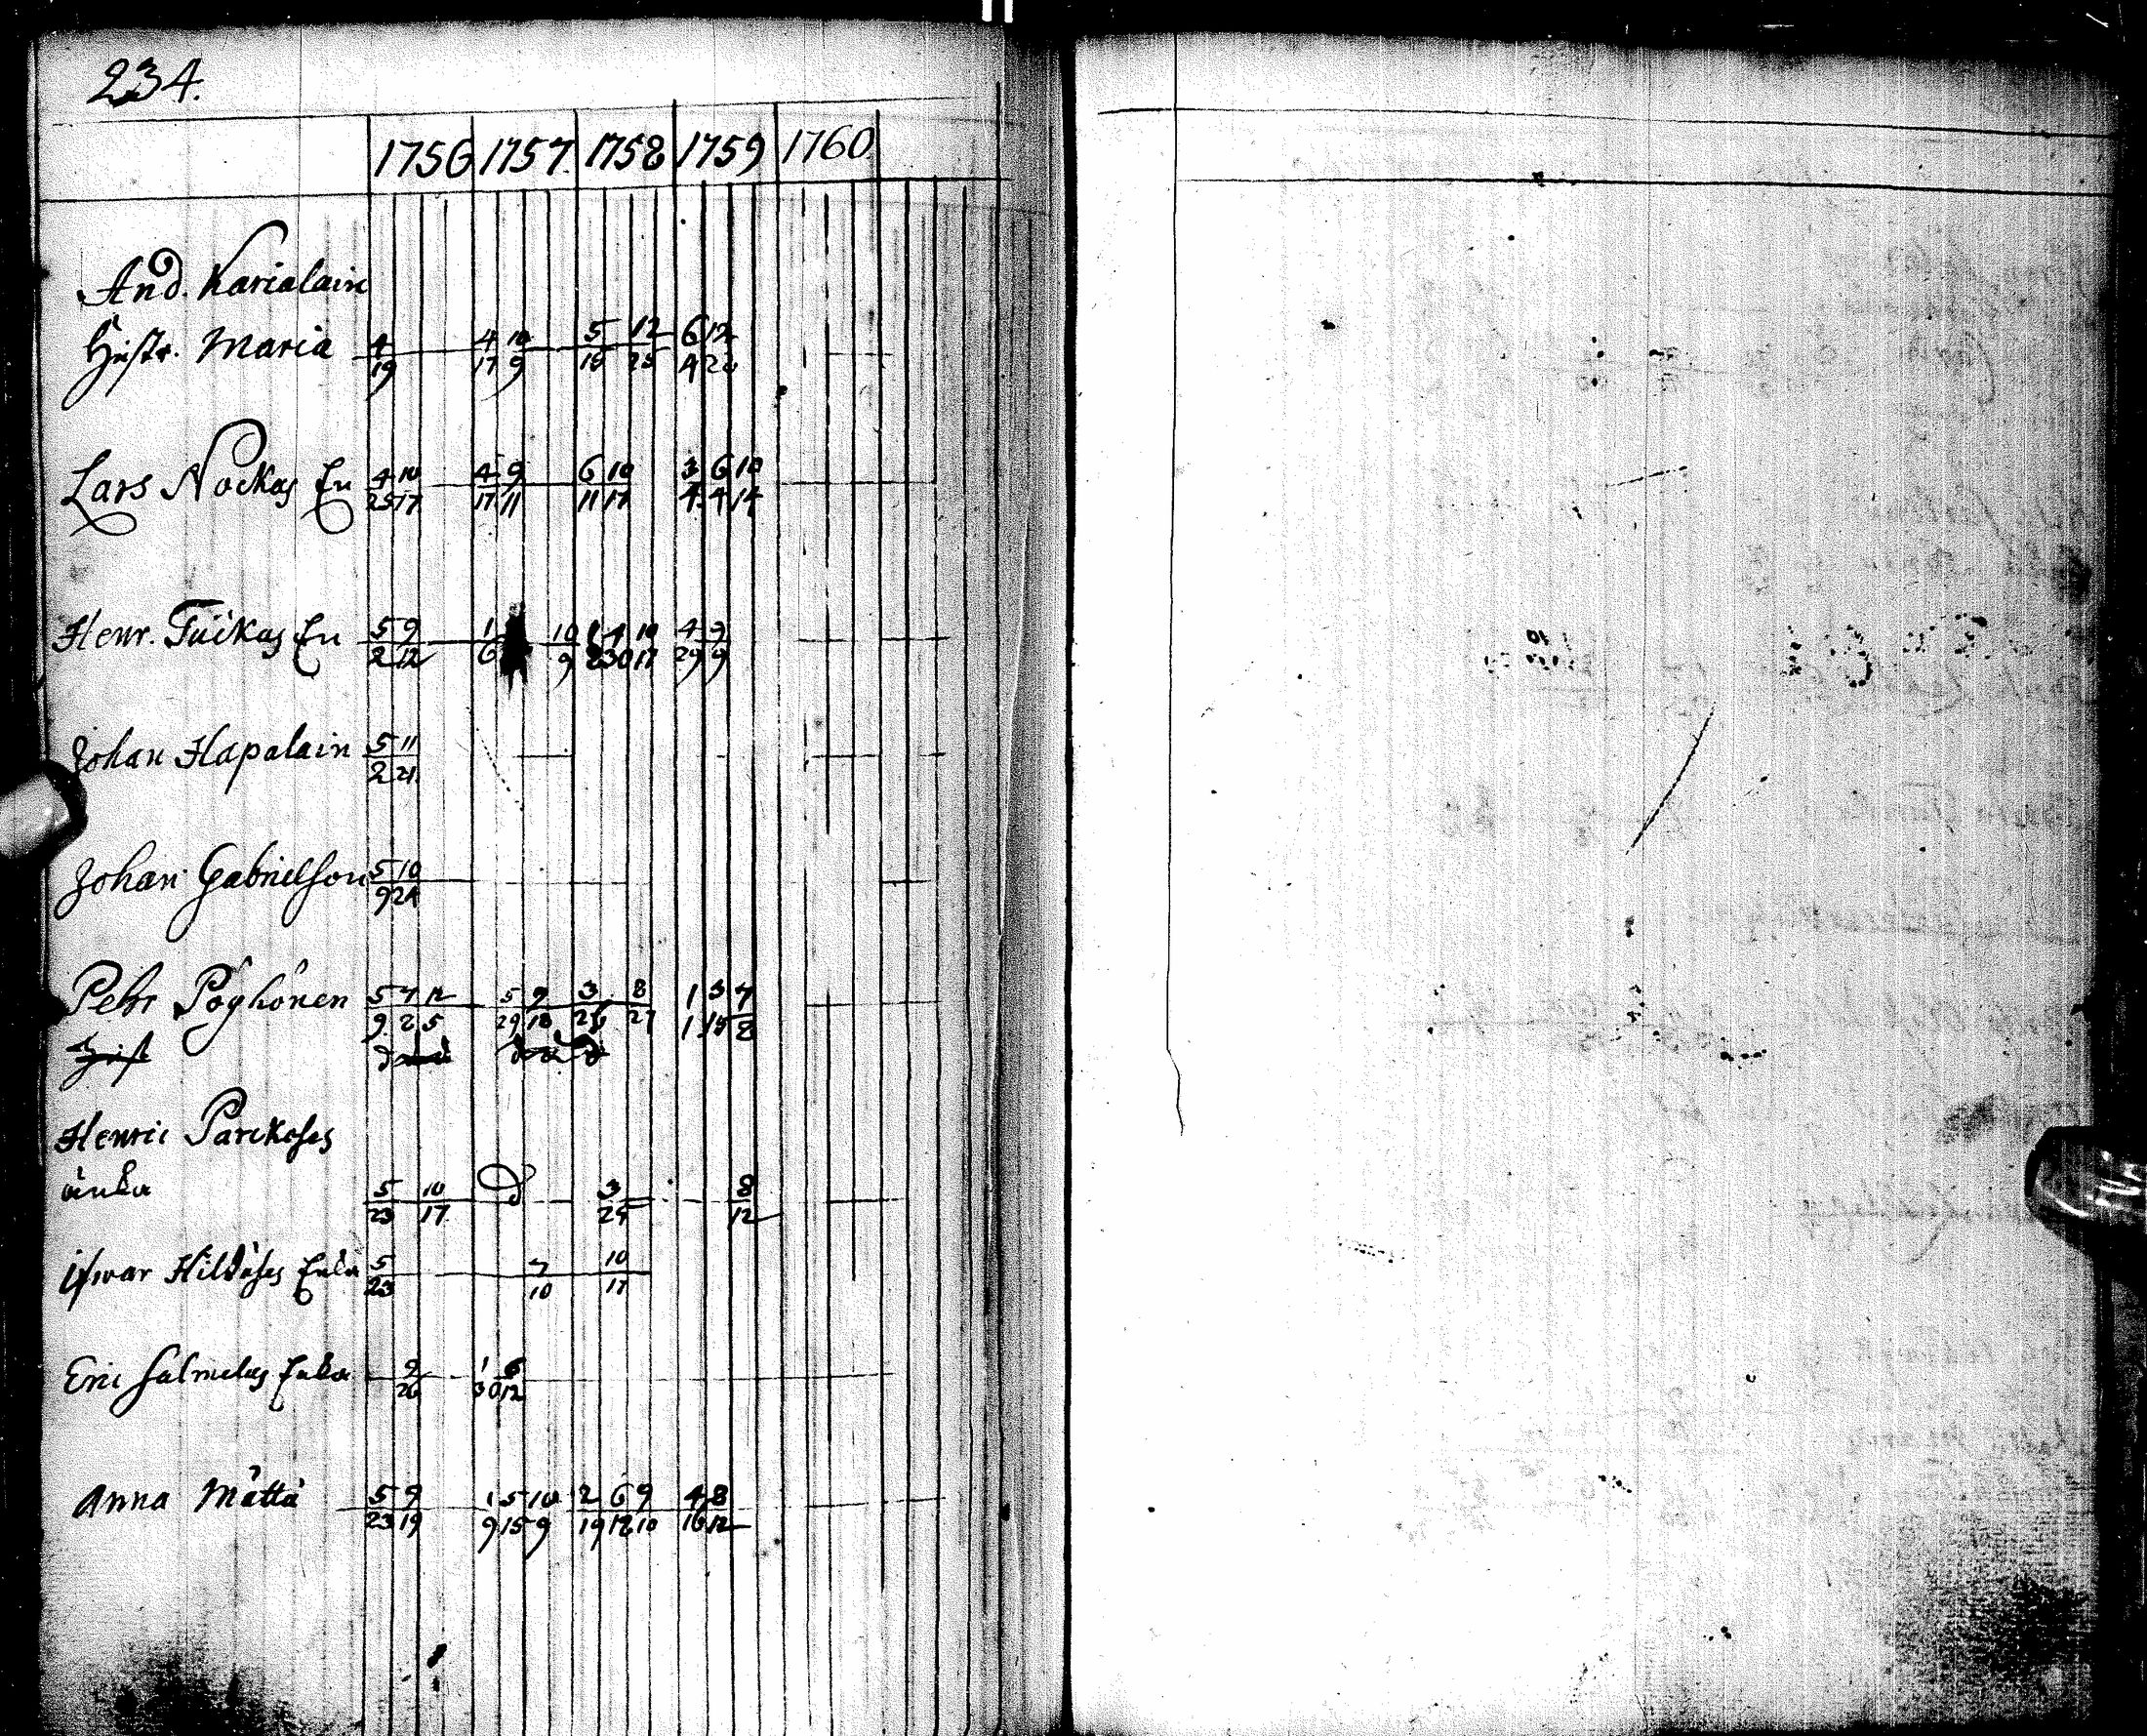 234.
1756 1757. 1758 1759 1760.
And. Karialain
Hustr. Maria 4/19 4/17 10/9 5/18 12/28 6/4 12/20
Lars Nockas En 4/25 10/17 4/17 9/11 6/11 10/17 3/4 6/4 10/14
Henr. Tuikas En 5/2 9/12 1/6 10/9 4/30 10/17 4/29 9/9
Johan Hapalain 5/2 11/21
Johan Gabrielson 5/9 10/24
Petr Pöyhönen 5/9 7/2 12/5 5/29 9/18 3/25 8/27 1/1 3/15 7/8
Henric Parckoses
änka 5/23 10/17 3/25 8/12
Ifwar Hildoses Enka 5/23 7/10 10/17
Eric Salmelas Enka 9/26 1/30 6/12
Anna Mättä 5/23 9/19 1/9 5/15 10/9 2/19 6/12 9/10 4/16 8/12